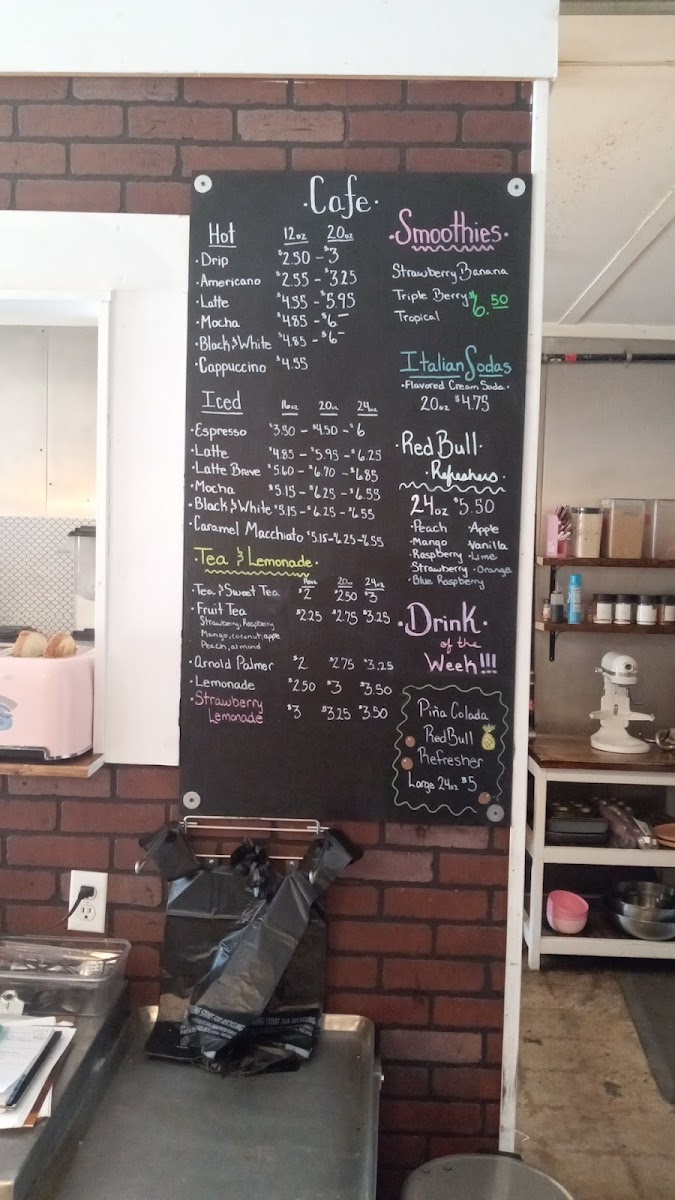 ·Cafe·
Hot 12oz 20oz
·Drip $2.50 - $3
·Americano $2.55 - $3.25
·Latte $4.55 - $5.95
·Mocha $4.85 - $6-
·Black & White $4.85 - $6-
·Cappuccino $4.55
Iced 16oz 20oz 24oz
·Espresso $3.50 - $4.50 - $6
·Latte $4.85 - $5.95 - $6.25
·Latte Breve $5.60 - $6.70 - $6.85
·Mocha $5.15 - $6.25 - $6.55
·Black & White $5.15 - $6.25 - $6.55
·Caramel Macchiato $5.15 - $6.25 - $6.55
·Tea & Lemonade·
·Tea & Sweet Tea $2 $2.50 $3
16oz 20oz 24oz
·Fruit Tea $2.25 $2.75 $3.25
Strawberry, Raspberry
Mango, coconut, apple
Peach, almond
·Arnold Palmer $2. $2.75 $3.25
·Lemonade $2.50 $3 $3.50
·Strawberry
Lemonade $3 $3.25 $3.50
·Smoothies·
Strawberry Banana
Triple Berry $6.50
Tropical
Italian Sodas
·Flavored Cream Soda·
20oz $4.75
·Red Bull·
·Refreshers·
24oz $5.50
·Peach ·Apple
·Mango ·Vanilla
·Raspberry ·Lime
·Strawberry ·Orange
·Blue Raspberry
·Drink·
of the
Week!!!
Piña Colada
Red Bull
Refresher
Large 24oz $5